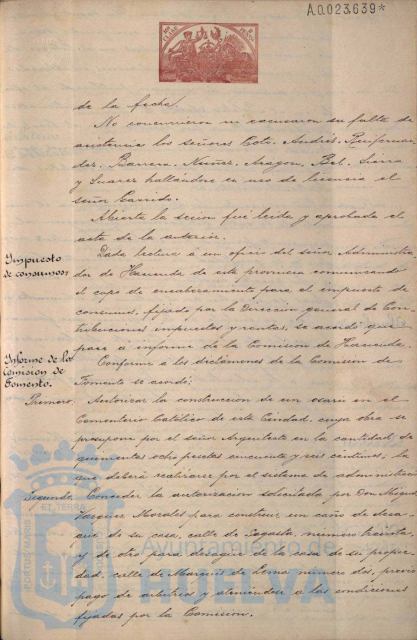 A.0.023.639*
de la fecha.
No concurrieron ni escusaron su falta de
asistencia los señores Coto. Andrés.
dez. Barrera. Nuñez. Aragon. Bel. Sierra
y Suarez hallándose en uso de licencia el
señor Garrido.
Abierta la sesion fué leida y aprobada el
acta de la anterior.
Impuesto
de consumos
Dada lectura á un oficio del señor Administra
dor de Hacienda de esta provincia comunicando
el cupo de encabezamiento para el impuesto de
consumos, fijado por la Direccion general de Con
tribuciones impuestos y rentas, se acordó que
pase á informe de la Comision de Hacienda.
Informe de la
Comision de
Fomento.
Conforme á los dictámenes de la Comision de
Fomento se acordó:
Primero.
Autorizar la construccion de un osario en el
Cementerio Católico de esta Ciudad, cuya obra se
presupone por el señor Arquitecto en la cantidad de
quinientas ocho pesetas cincuenta y seis céntimos, la
que deberá realizarse por el sistema de administracion
Segundo
Conceder la autorizacion solicitada por Don Miguel
Vazquez Morales para construir un caño de desa
güe de su casa, calle de Sagasta, numero treinta,
y de otro para desagüe de la casa de su propie
dad, calle de Marqués de numero dos, previo
pago de arbitrios y ateniendose á las condiciones
fijadas por la Comision.
Ayuntamiento de
HUELVA